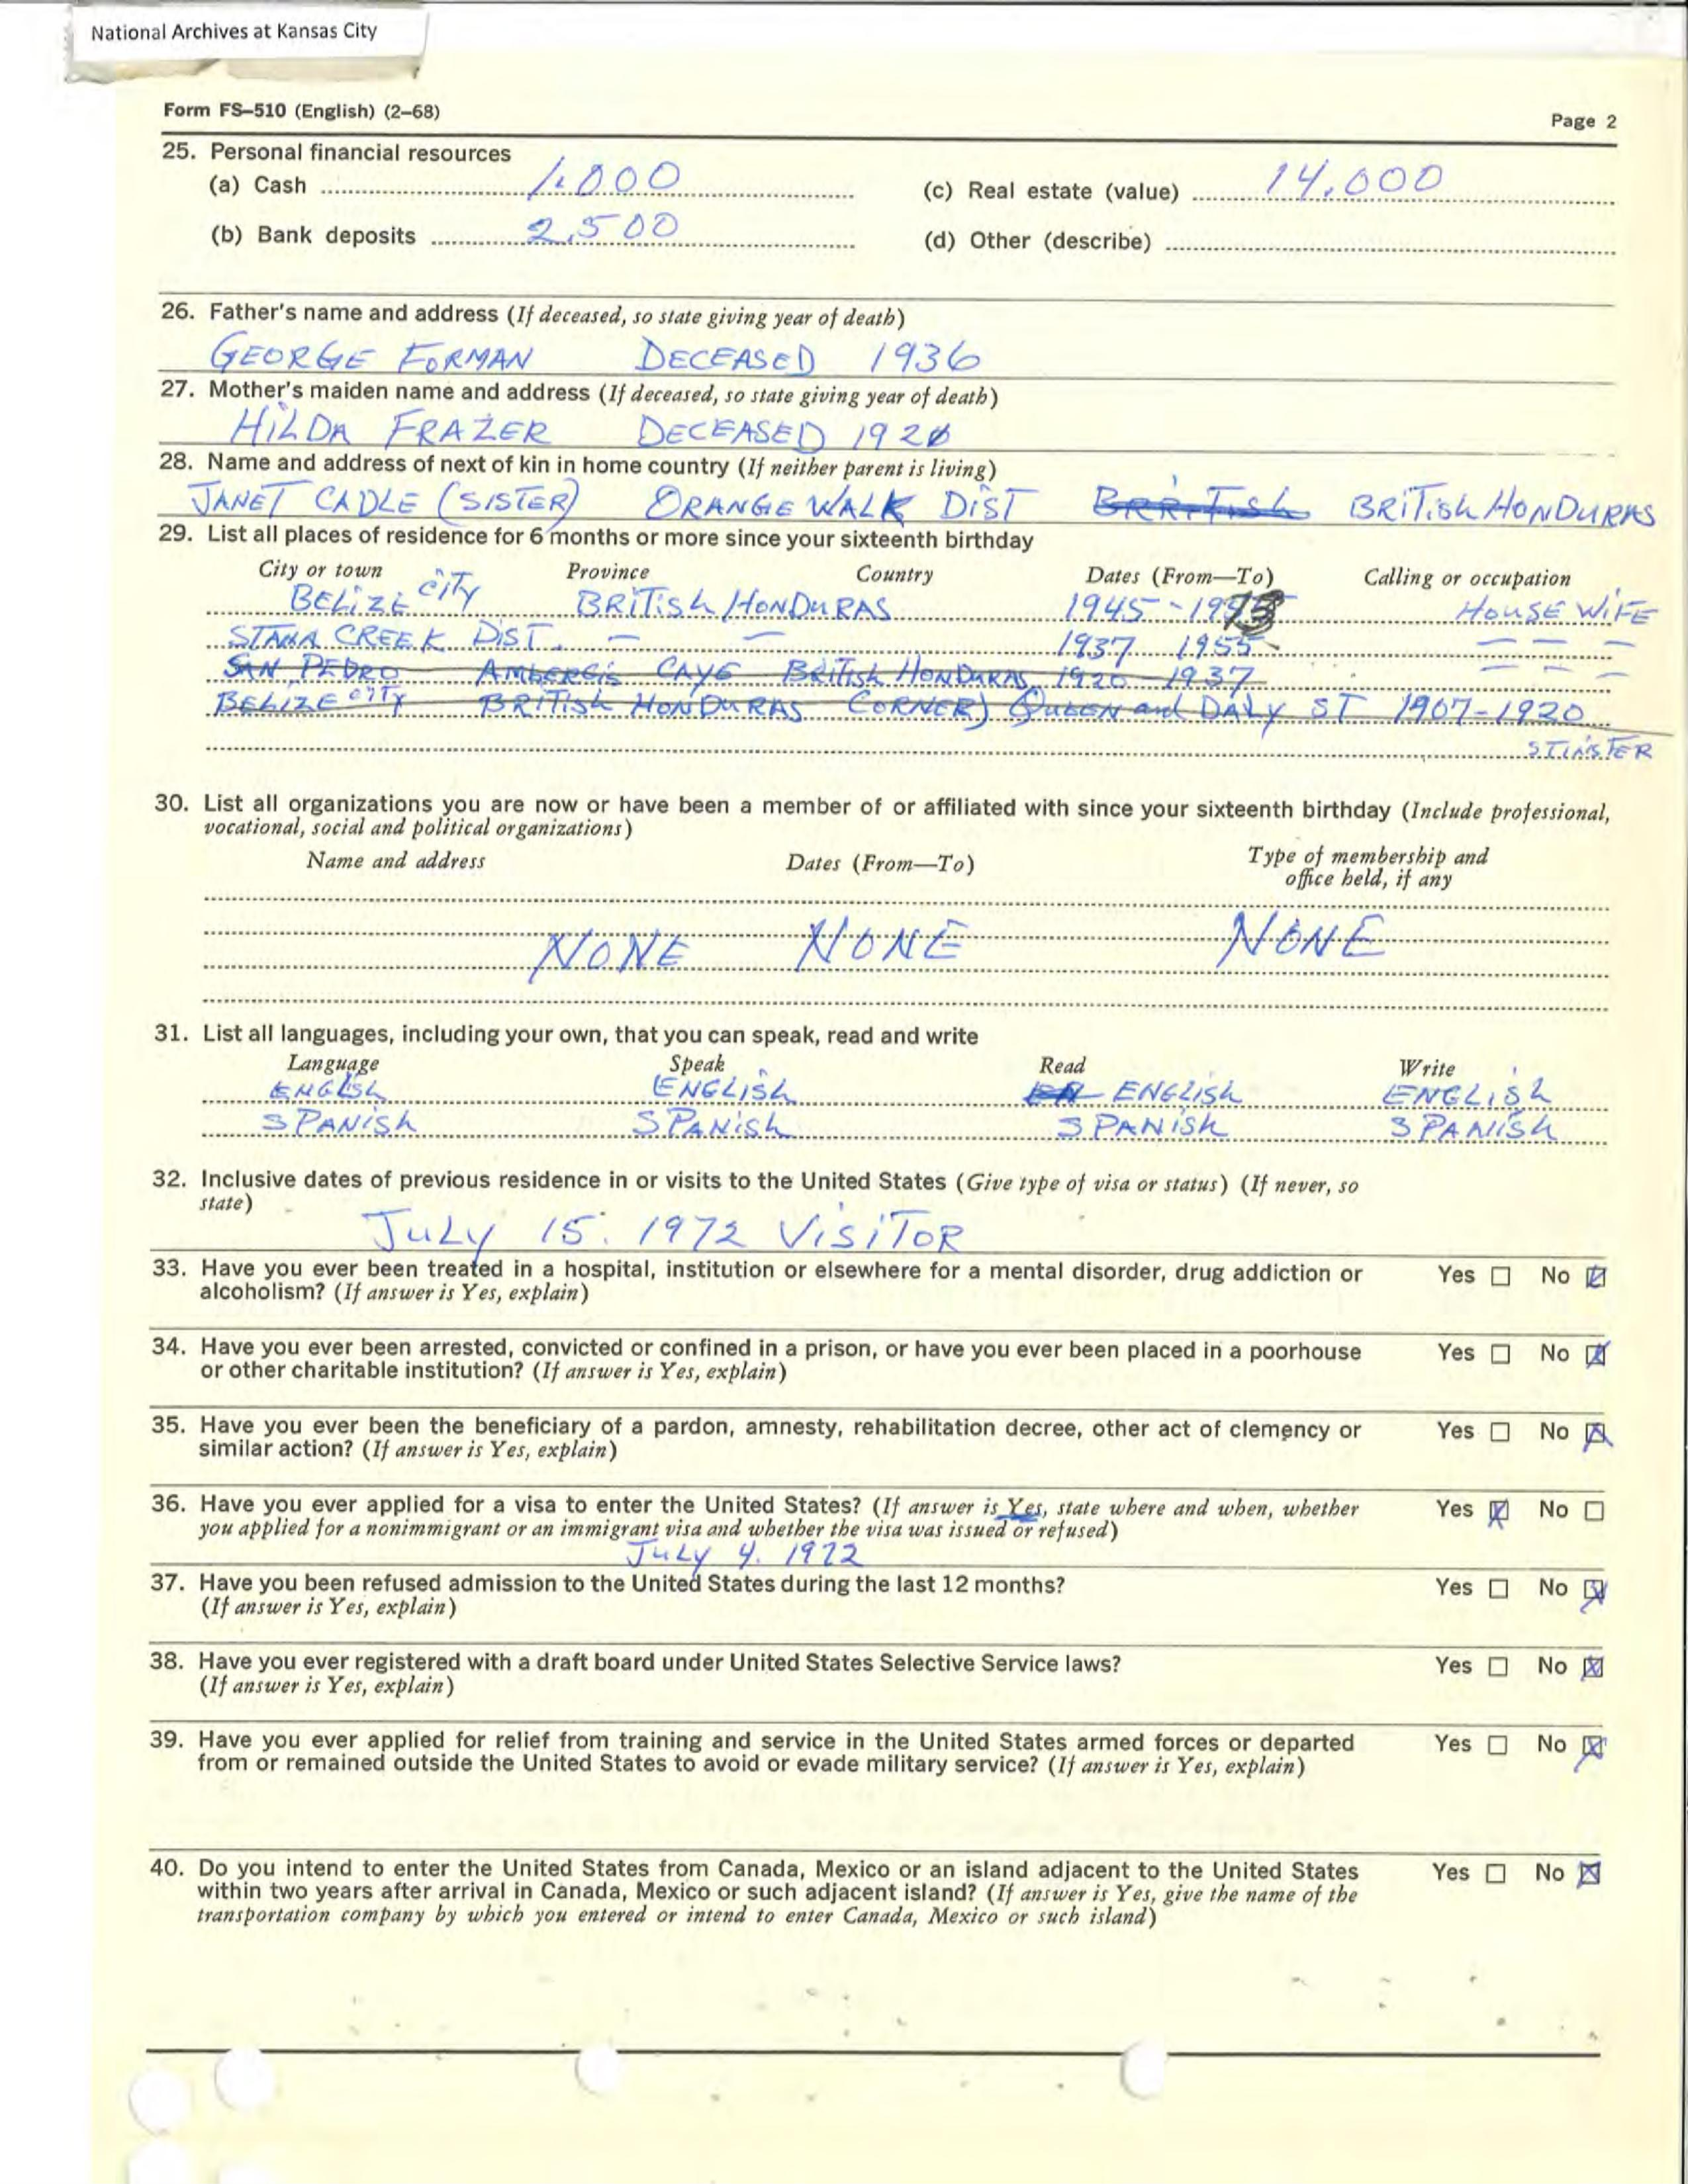 National Archives at Kansas City
Form FS–510 (English) (2–68)
Page 2
25. Personal financial resources
(a) Cash 1.000
(c) Real estate (value) 14.000
(b) Bank deposits 2.500
(d) Other (describe)
26. Father's name and address (If deceased, so state giving year of death)
GEORGE FORMAN DECEASED 1936
27. Mother's maiden name and address (If deceased, so state giving year of death)
HILDA FRAZER DECEASED
28. Name and address of next of kin in home country (If neither parent is living)
JANET CADLE (SISTER) ORANGE WALK DIST BRITISH HONDURAS
29. List all places of residence for 6 months or more since your sixteenth birthday
City or town Province Country Dates (From—To) Calling or occupation
BELIZE CITY BRITISH HONDURAS 1945 - HOUSE WIFE
CREEK DIST. — — 1937 1955 — — — —
SAN PEDRO AMBERGIS CAYE BRITISH HONDURAS 1920 - 1937 — — —
BELIZE CITY BRITISH HONDURAS CORNER) QUEEN and DALY ST 1907-1920
30. List all organizations you are now or have been a member of or affiliated with since your sixteenth birthday (Include professional,
vocational, social and political organizations)
Name and address Dates (From—To) Type of membership and
office held, if any
NONE NONE NONE
31. List all languages, including your own, that you can speak, read and write
Language Speak Read Write
ENGLSH ENGLISH ENGLISH ENGLISH
SPANISH SPANISH SPANISH SPANISH
32. Inclusive dates of previous residence in or visits to the United States (Give type of visa or status) (If never, so
state)
JULY 15. 1972 VISITOR
33. Have you ever been treated in a hospital, institution or elsewhere for a mental disorder, drug addiction or Yes No
alcoholism? (If answer is Yes, explain)
34. Have you ever been arrested, convicted or confined in a prison, or have you ever been placed in a poorhouse Yes No
or other charitable institution? (If answer is Yes, explain)
35. Have you ever been the beneficiary of a pardon, amnesty, rehabilitation decree, other act of clemency or Yes No
similar action? (If answer is Yes, explain)
36. Have you ever applied for a visa to enter the United States? (If answer is Yes, state where and when, whether Yes No
you applied for a nonimmigrant or an immigrant visa and whether the visa was issued or refused)
JULY 4. 1972
37. Have you been refused admission to the United States during the last 12 months? Yes No
(If answer is Yes, explain)
38. Have you ever registered with a draft board under United States Selective Service laws? Yes No
(If answer is Yes, explain)
39. Have you ever applied for relief from training and service in the United States armed forces or departed Yes No
from or remained outside the United States to avoid or evade military service? (If answer is Yes, explain)
40. Do you intend to enter the United States from Canada, Mexico or an island adjacent to the United States Yes No
within two years after arrival in Canada, Mexico or such adjacent island? (If answer is Yes, give the name of the
transportation company by which you entered or intend to enter Canada, Mexico or such island)